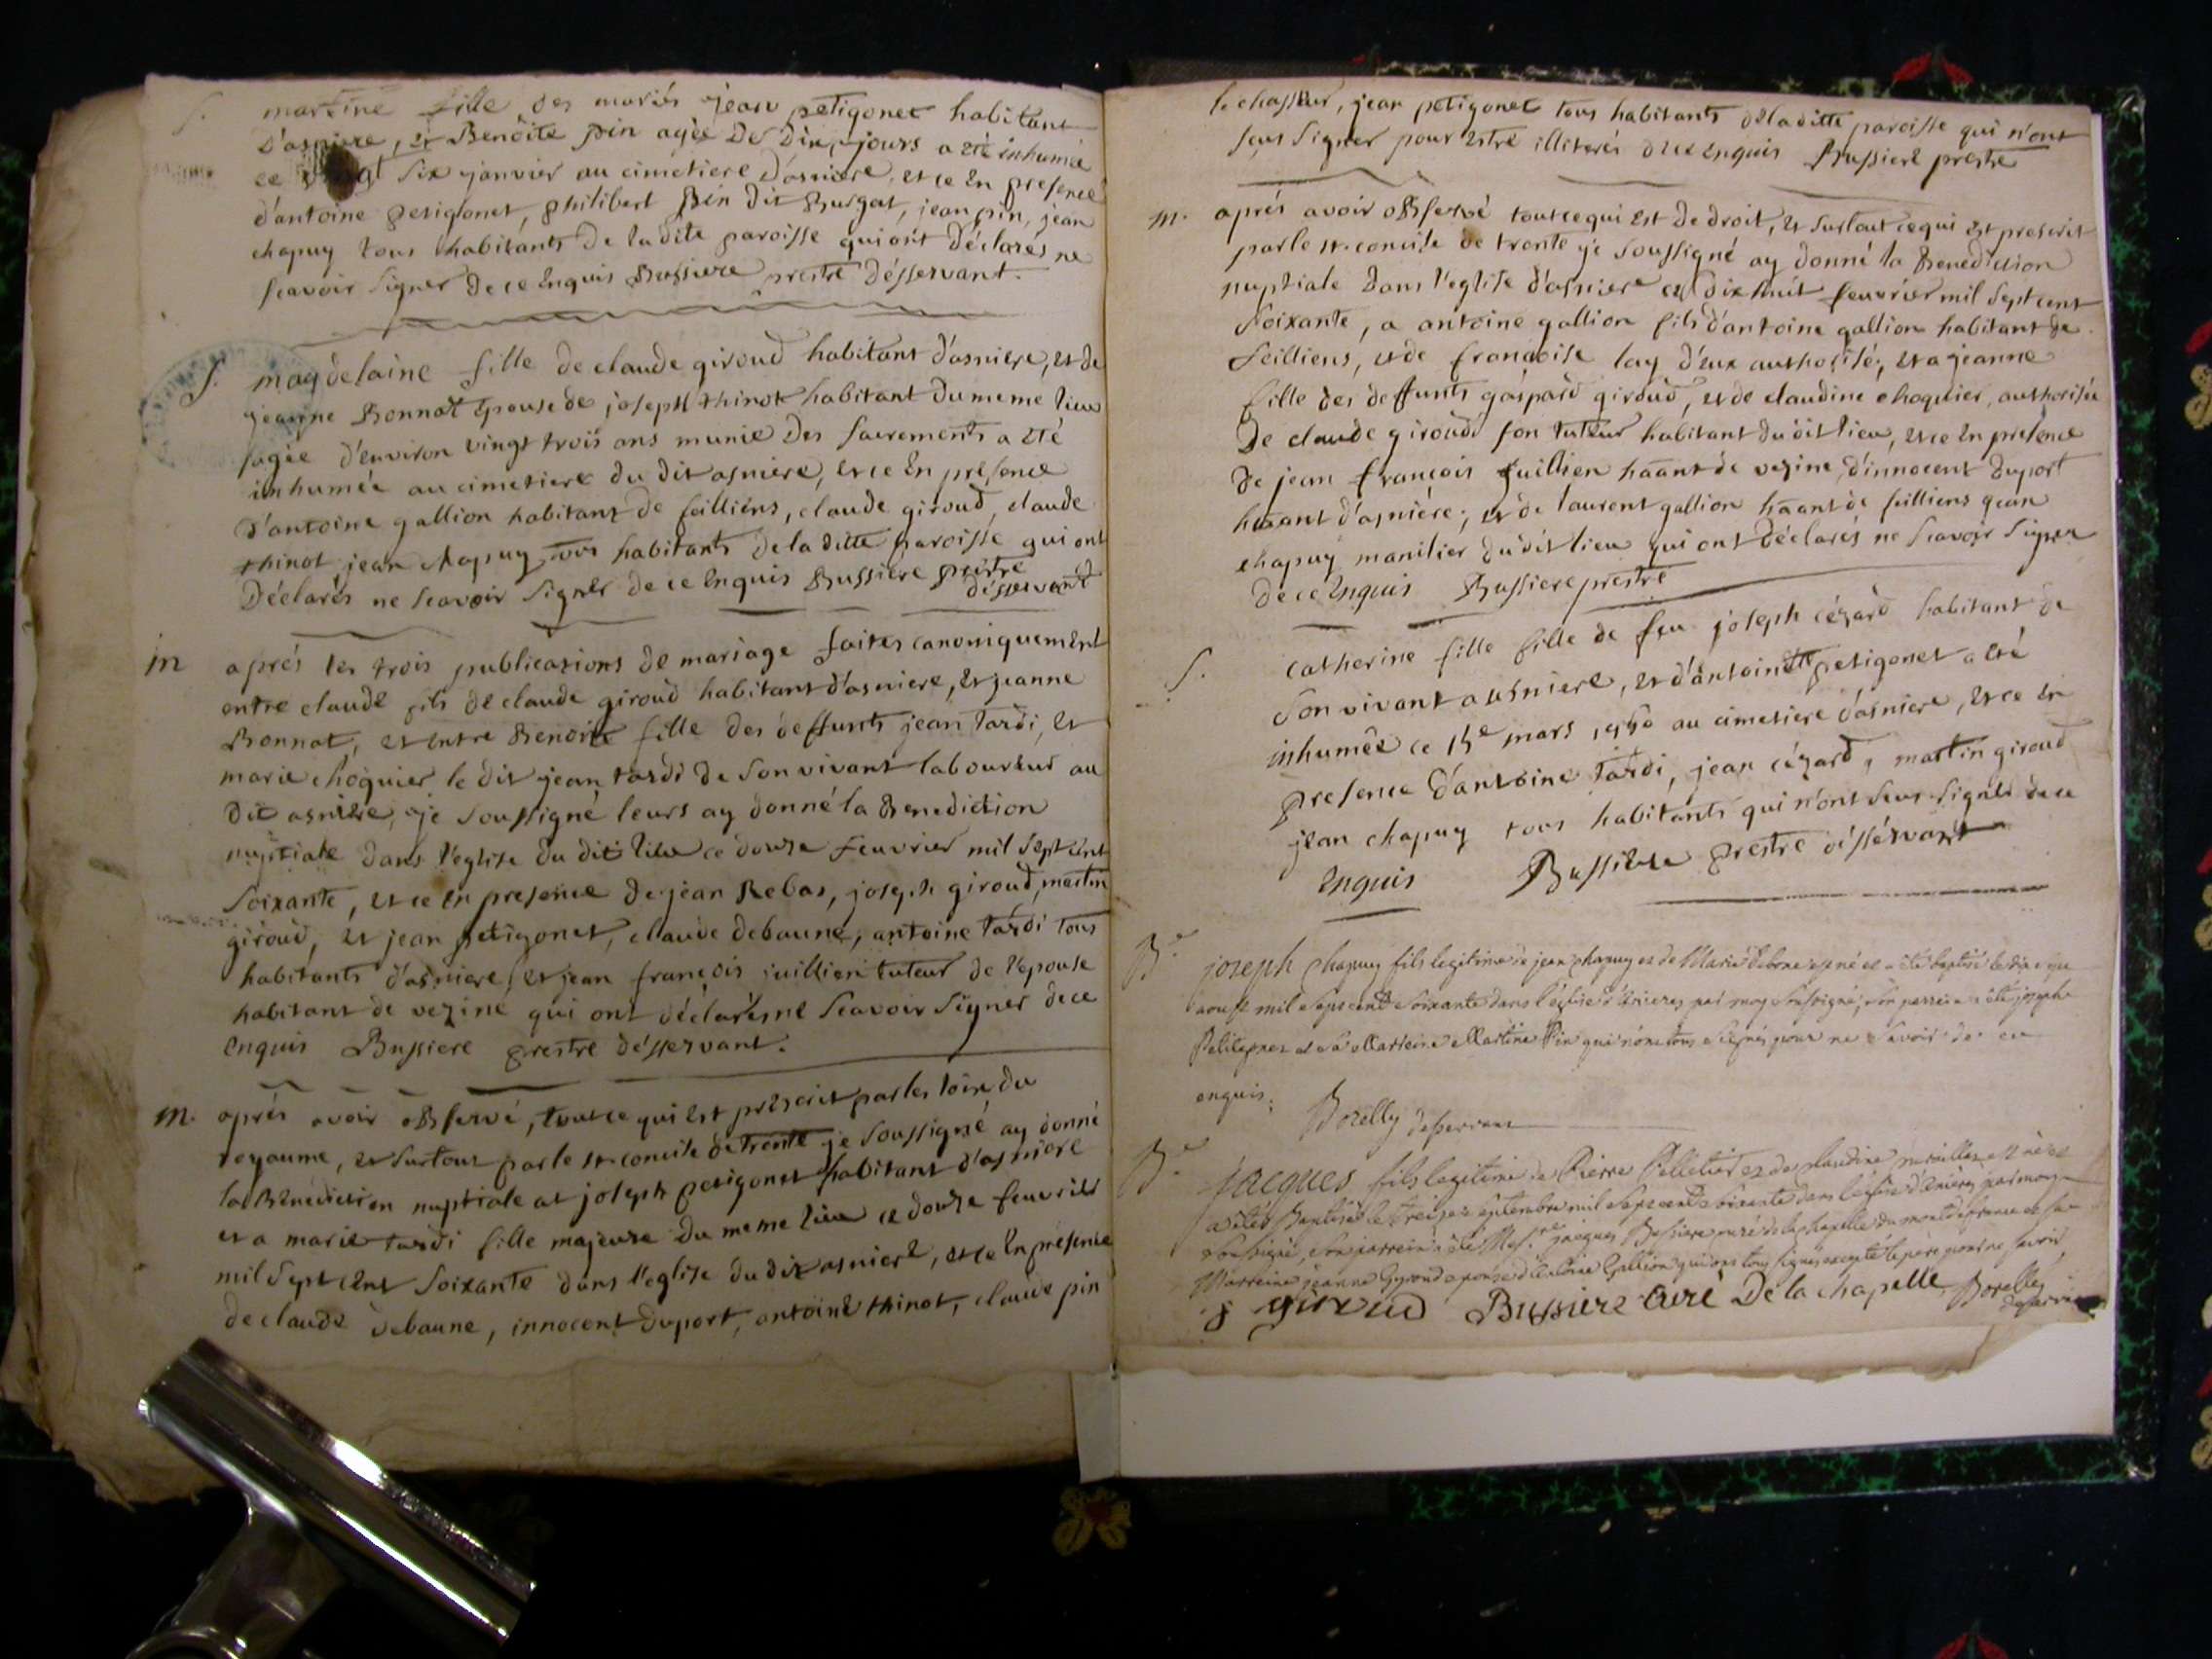 S. martine fille des mariés jean petigonet habitant
d'asniere, et Benoite pin agée de dix jours a été inhumée
ce vingt six janvier au cimétiere d'asniere, et ce en presence
d'antoine petigonet, philibert pin dit Burgat, jean pin, jean
chapuy tous habitants de la dite paroisse qui ont déclarés ne
scavoir signer de ce enquis Bussiere prestre désservant.
S. magdelaine fille de claude giroud habitant d'asniere, et de
jeanne Bonnat épouse de joseph thinot habitant du meme lieu
agée d'environ vingt trois ans munie des sacrements a eté
inhumée au cimetiere du dit asniere, et ce en presence
d'antoine gallion habitant de feilliens, claude giroud, claude
thinot, jean chapuy tous habitants de la ditte paroisse qui ont
déclarés ne scavoir signer de ce enquis Bussiere prestre
désservant
m aprés les trois publications de mariage faites canoniquement
entre claude fils de claude giroud habitant d'asniere, et jeanne
Bonnat, et entre Benoite fille des deffunts jean tardi, et
marie choquier le dit jean tardi de son vivant laboureur au
dit asniere, je soussigné leurs ay donné la Benediction
nuptiale dans l'eglise du dit lieu ce douze feuvrier mil sept cent
soixante, et ce en presence de jean Rebas, joseph giroud, martin
giroud, et jean petigonet, claude debaune, antoine tardi tous
habitants d'asniere, et jean françois juillien tuteur de l'epouse
habitant de vezine qui ont déclarés ne scavoir signer de ce
enquis Bussiere prestre désservant.
m. aprés avoir observé, tout ce qui est prescrit par les loix du
royaume, et surtout par le st. concile de trente je soussigné ay donné
la Benediction nuptiale at joseph petigonet habitant d'asniere
et a marie tardi fille majeure du meme lieu ce douze feuvrier
mil sept cent soixante dans l'eglise du dit asniere, et ce en présence
de claude debaune, innocent duport, antoine thinot, claude pin
le chasseur, jean petigonet tous habitants de la ditte paroisse qui n'ont
seus signer pour estre illiterés de ce enquis Bussiere prestre
m. aprés avoir observé tout ce qui est de droit, et surtout ce qui est prescrit
par le st. concile de trente je soussigné ay donné la Benediction
nuptiale dans l'eglise d'asniere ce dix huit feuvrier mil sept cent
soixante, a antoine gallion fils d'antoine gallion habitant de
feilliens, et de françoise lay d'eux authorisé, et a jeanne
fille des deffunts gaspard giroud, et de claudine choquier, authorisée
de claude giroud son tuteur habitant du dit lieu, et ce en presence
de jean françois juillien haant de vezine, d'innocent duport
haant d'asniere, et de laurent gallion haant de feilliens jean
chapuy manilier du dit lieu qui ont déclarés ne scavoir signer
de ce enquis Bussiere prestre
S. catherine fille fille de feu joseph cézard habitant de
son vivant a asniere, et d'antoinette petigonet a eté
inhumée ce 15e mars 1760 au cimetiere d'asniere, et ce en
presence d'antoine tardi, jean cézard, martin giroud
jean chapuy tous habitants qui n'ont seus signer de ce
enquis Bussiere prestre désservant
B. joseph Chapuy fils legitime de jean chapuy et de Marie debone est né et a été baptisé le
aoust mil sept cent soixante dans l'église d'anieres par moy soussigné, son parrein a été joseph
Petitgonet et sa Marreine Martine Pin qui n'ont tous signés pour ne savoir de ce
enquis. Borelly desservant
B. Jacques fils legitime de Pierre Pelletier et de claudine est né et
a été Baptisé le treize septembre mil sept cent soixante dans l'église d'anieres par moy
soussigné, son parrein a été Mes.re jacques Bussiere curé de la chapelle du mont de france et sa
Marreine jeanne Gyroud epouse d'antoine Gallion qui ont tous signés excepté le père pour ne savoir
j giroud Bussiere Curé De la chapelle Borelly
desservant